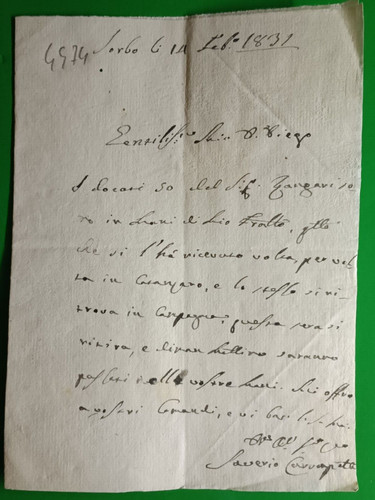 4974
Sorbo li 14 Feb.o 1831
Gentilis.mo Sig.r D. Diego
I docati 50 del Sig. Zangari so
no in mani di mio Fratto,
che si l'ha ricevuto volta, per vol
ta in Catanzaro, e lo stesso si ri
trova in Campagna, questa sera si
ritira, e diman mattino saranno
passati nelle vostre mani. Mi offro
a vostri Comandi, e vi bacio le ma
Saverio